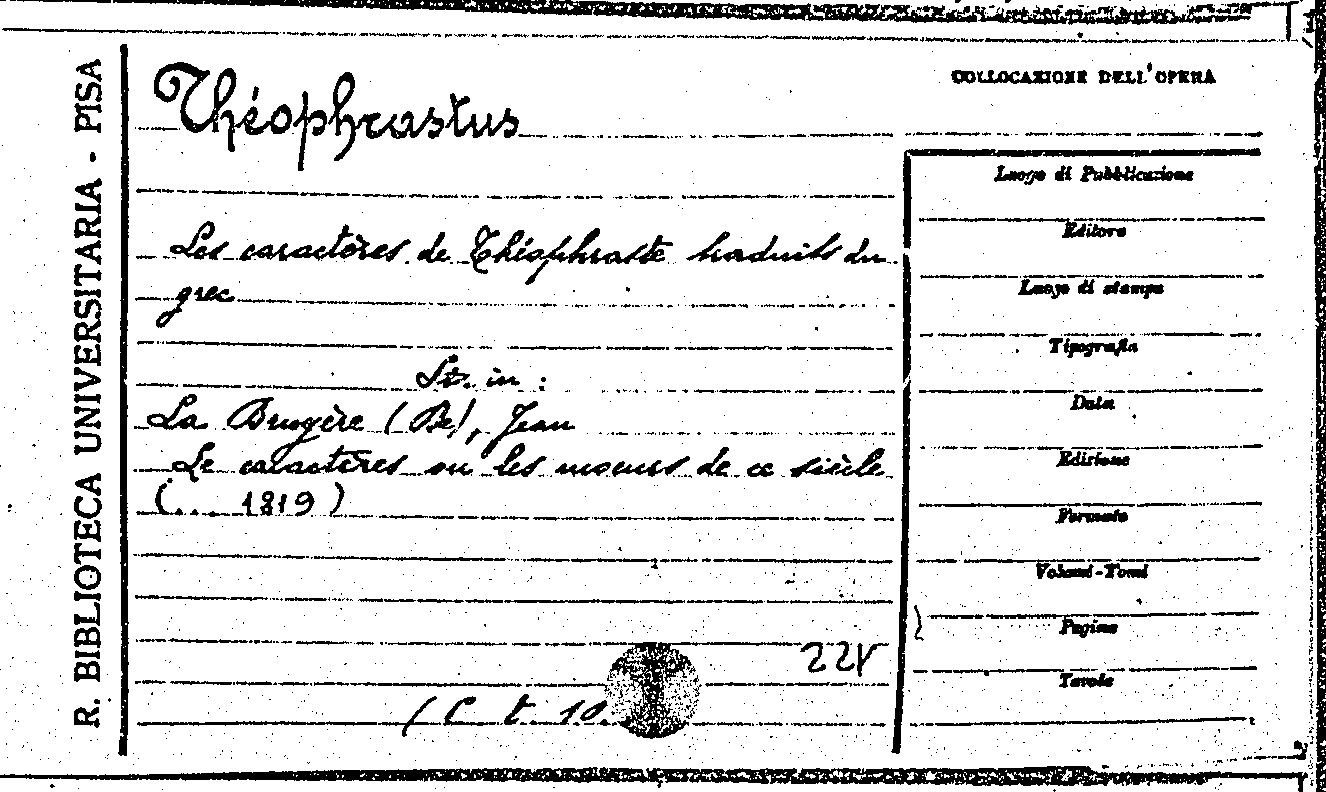 R. BIBLIOTECA UNIVERSITARIA - PISA
Théophrastus
Les caractères de Théophraste traduits du
grec
St. in :
La Bruyère (De), Jean
Le caractères ou les moeurs de ce siècle
(... 1819)
22
( C t. 10.
COLLOCAZIONE DELL'OPERA
Luogo di Pubblicazione
Editore
Luogo di stampa
Tipografia
Data
Edizione
Formato
Volumi-Tomi
Pagine
Tavole